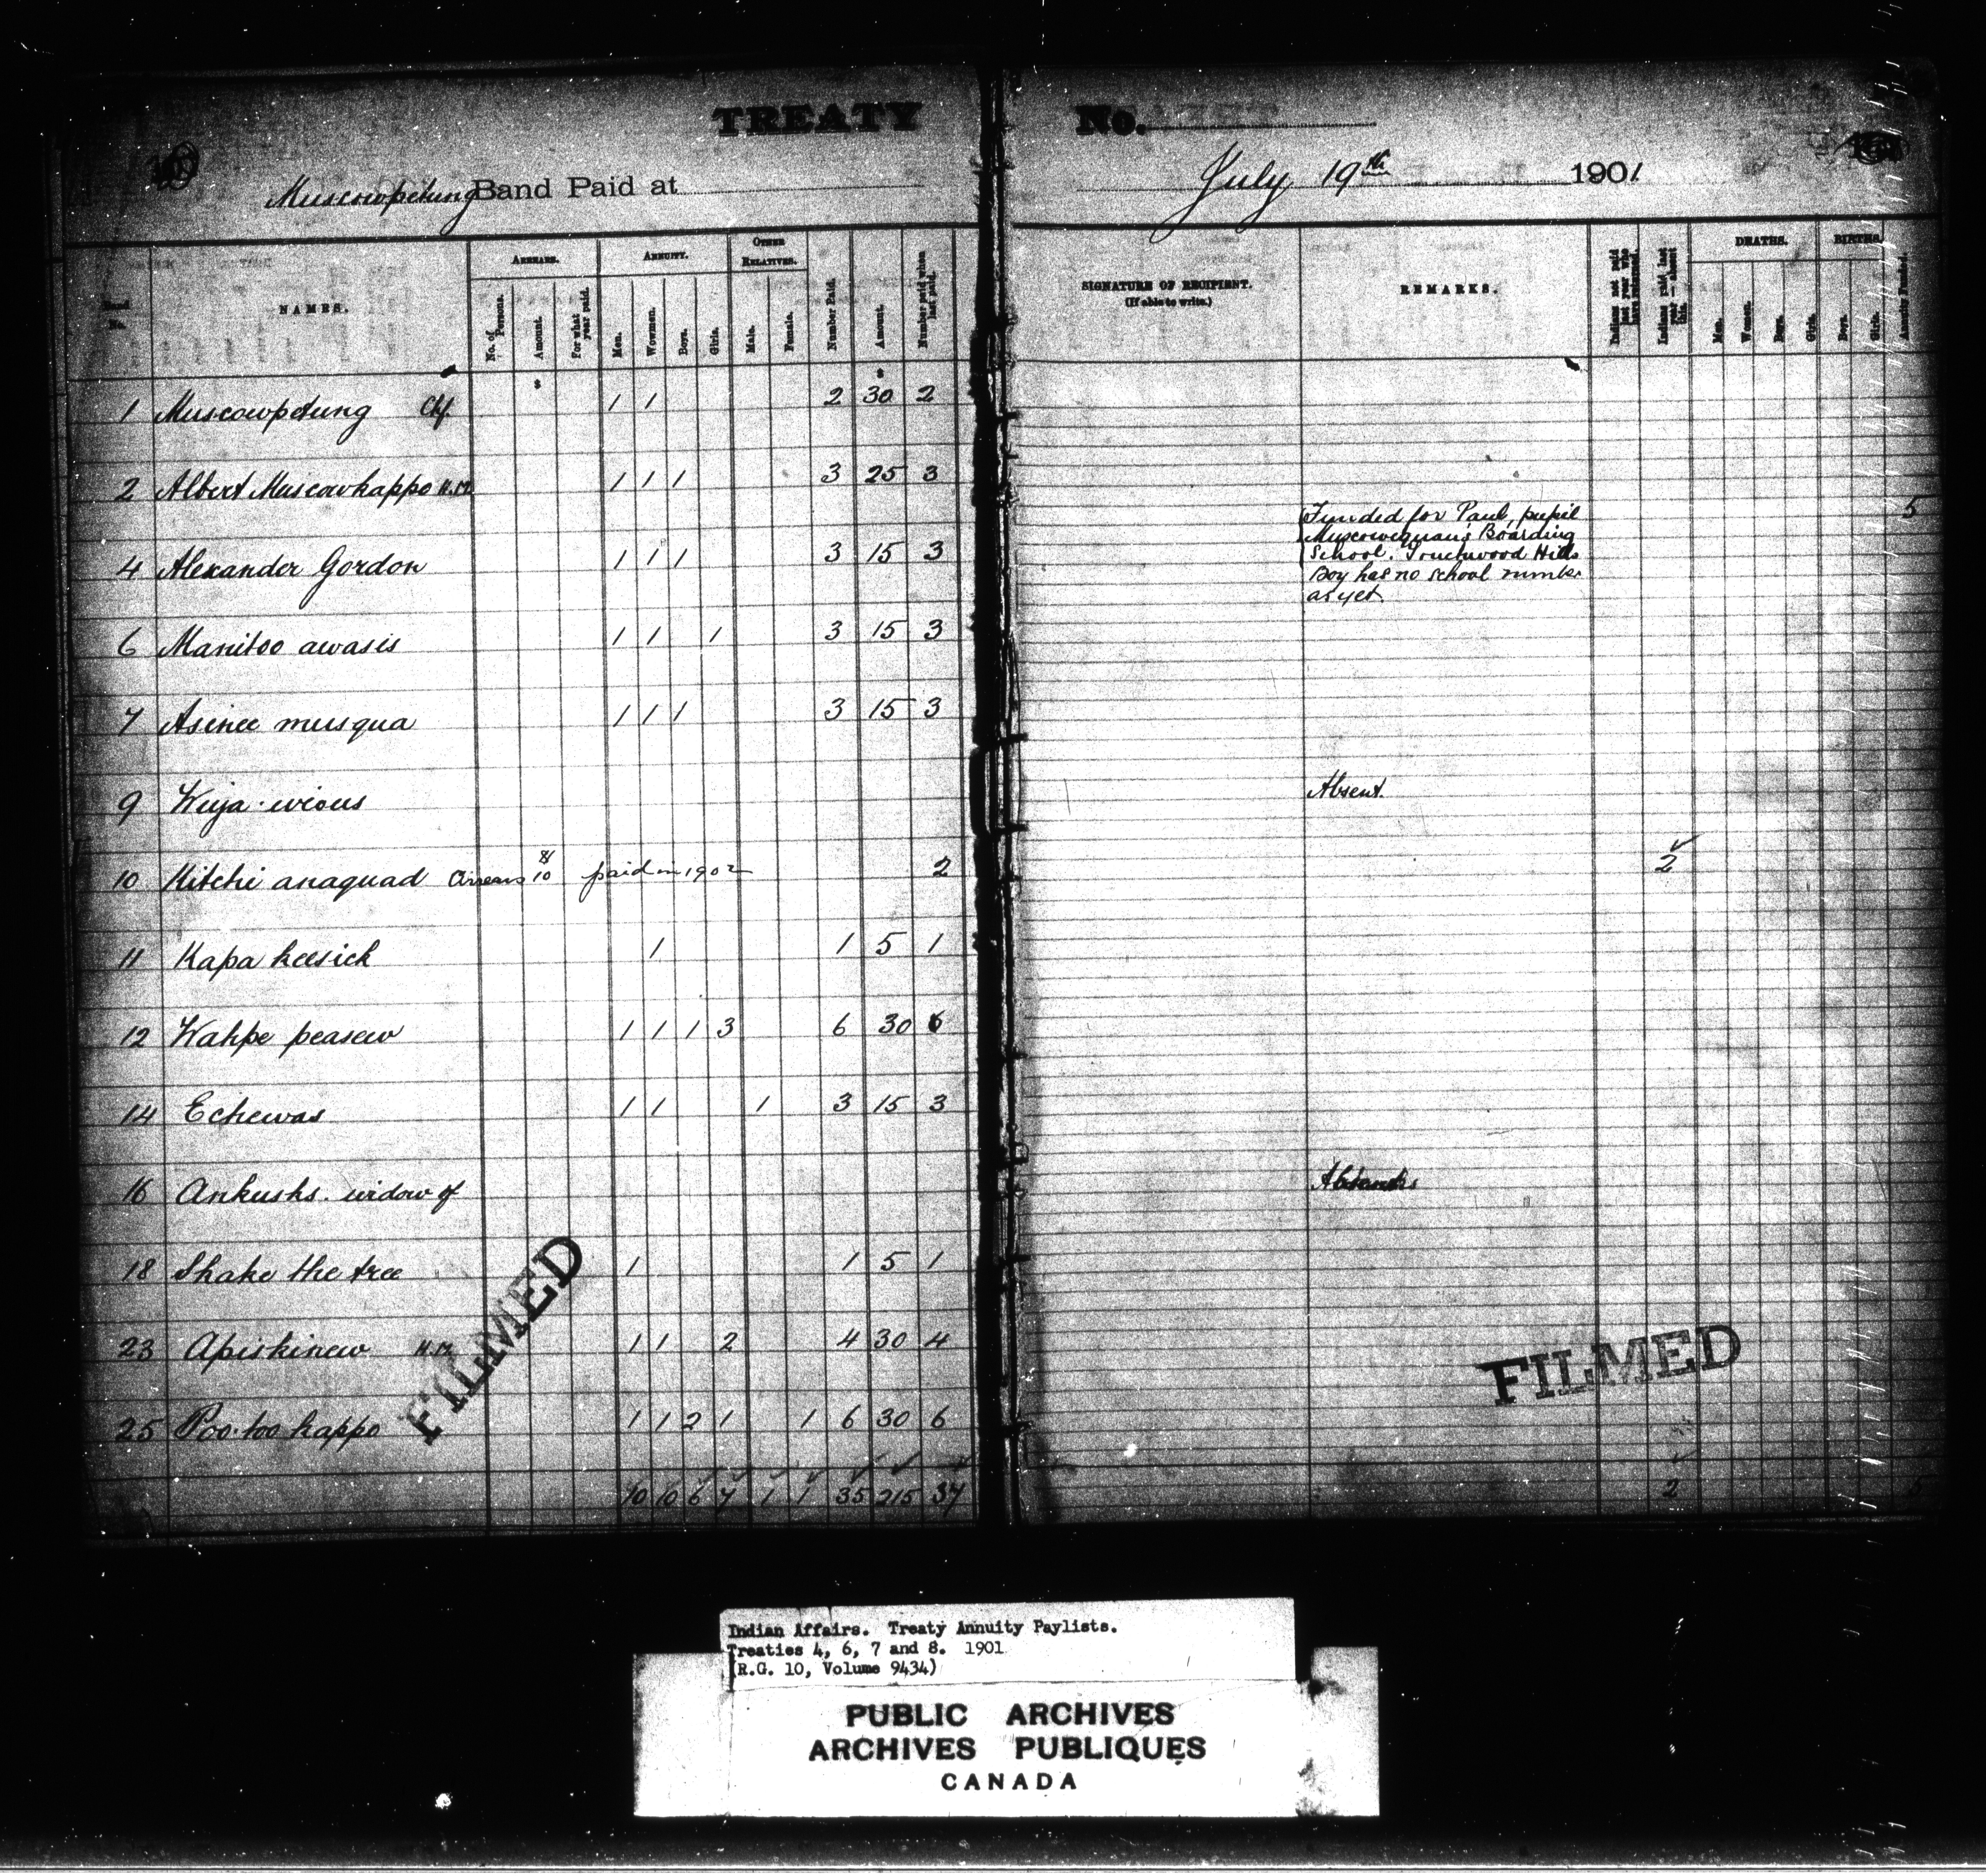 TREATY No.
Muscowpetung Band Paid at July 19th 1901
No. NAMES. ARREARS. ANNUITY. OTHER RELATIVES. Number Paid. Amount. Number paid when last paid. SIGNATURE OF RECIPIENT. (If able to write.) REMARKS. Indians paid last year — absent this. DEATHS. BIRTHS. Annuity Funded.
No. of Persons. Amount. For what year paid. Men. Women. Boys. Girls. Male. Female. Men. Women. Boys. Girls. Boys. Girls.
1 Muscowpetung Chf. 1 1 2 30 2
2 Albert Muscowkappo H.M. 1 1 1 3 25 3
Funded for Paul, pupil 5
Muscowequans Boarding
School. Touchwood Hills
4 Alexander Gordon 1 1 1 3 15 3
Boy has no school number
as yet.
6 Manitoo awasis 1 1 1 3 15 3
7 Asinee musqua 1 1 1 3 15 3
9 Absent.
10 Kitchi anaquad Arrears $10 paid in 1902 2 2
11 Kapa keesick 1 1 5 1
12 Wahpe peasew 1 1 1 3 6 30 6
14 Echewas 1 1 1 3 15 3
16 Ankushs. widow of
18 Shake the tree 1 1 5 1
23 Apiskinew H.M. 1 1 2 4 30 4
25 Poo-too kappo 1 1 2 1 1 6 30 6
10 10 6 7 1 1 35 215 37 2 5
FILMED
FILMED
Indian Affairs. Treaty Annuity Paylists.
Treaties 4, 6, 7 and 8. 1901
(R.G. 10, Volume 9434)
PUBLIC ARCHIVES
ARCHIVES PUBLIQUES
CANADA